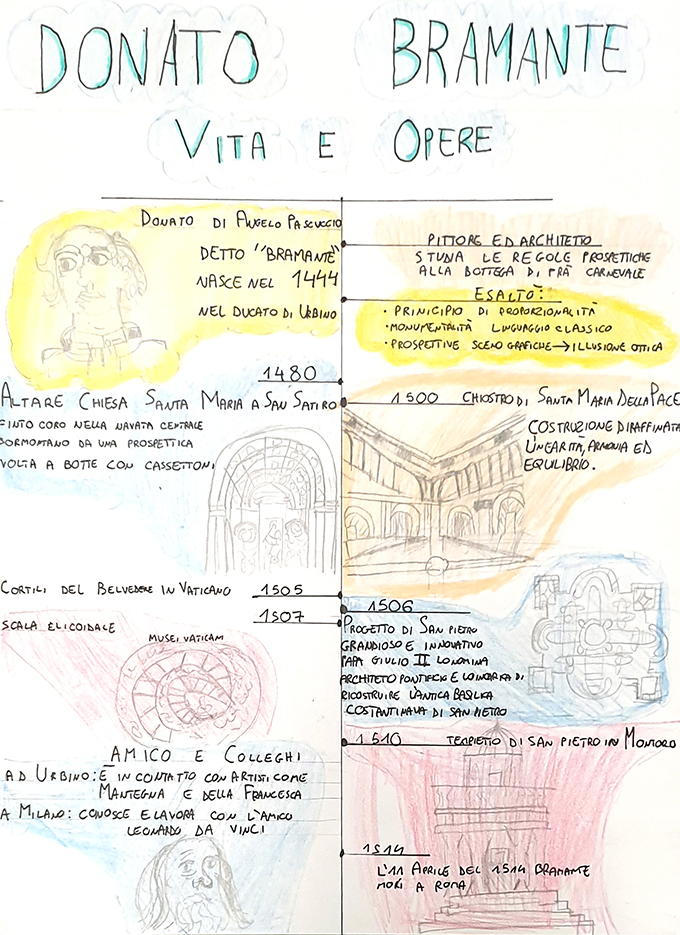 DONATO BRAMANTE
VITA E OPERE
DONATO DI ANGELO PASCUCCIO
DETTO "BRAMANTE"
NASCE NEL 1444
NEL DUCATO DI URBINO
PITTORE ED ARCHITETTO
STUDIA LE REGOLE PROSPETTICHE
ALLA BOTTEGA DI FRÀ CARNEVALE
ESALTÒ:
• PRINICIPIO DI PROPORZIONALITÀ
• MONUMENTALITÀ LINGUAGGIO CLASSICO
• PROSPETTIVE SCENOGRAFICHE → ILLUSIONE OTTICA
1480
ALTARE CHIESA SANTA MARIA A SAN SATIRO
FINTO CORO NELLA NAVATA CENTRALE
SORMONTANO DA UNA PROSPETTICA
VOLTA A BOTTE CON CASSETTONI
1500 CHIOSTRO DI SANTA MARIA DELLA PACE
COSTRUZIONE DI RAFFINATA
LINEARITÀ, ARMONIA ED
EQUILIBRIO.
CORTILI DEL BELVEDERE IN VATICANO 1505
1507
SCALA ELICOIDALE
MUSEI VATICANI
1506
PROGETTO DI SAN PIETRO
GRANDIOSO E INNOVATIVO
PAPA GIULIO II LO NOMINA
ARCHITETO PONTIFICIO E LO INCARICA DI
RICOSTRUIRE L'ANTICA BASILICA
COSTANTINIANA DI SAN PIETRO
1510 TEMPIETTO DI SAN PIETRO IN MONTORO
AMICO E COLLEGHI
AD URBINO: È IN CONTATTO CON ARTISTI COME
MANTEGNA E DELLA FRANCESCA
A MILANO: CONOSCE E LAVORA CON L'AMICO
LEONARDO DA VINCI
1514
L'11 APRILE DEL 1514 BRAMANTE
MORÌ A ROMA